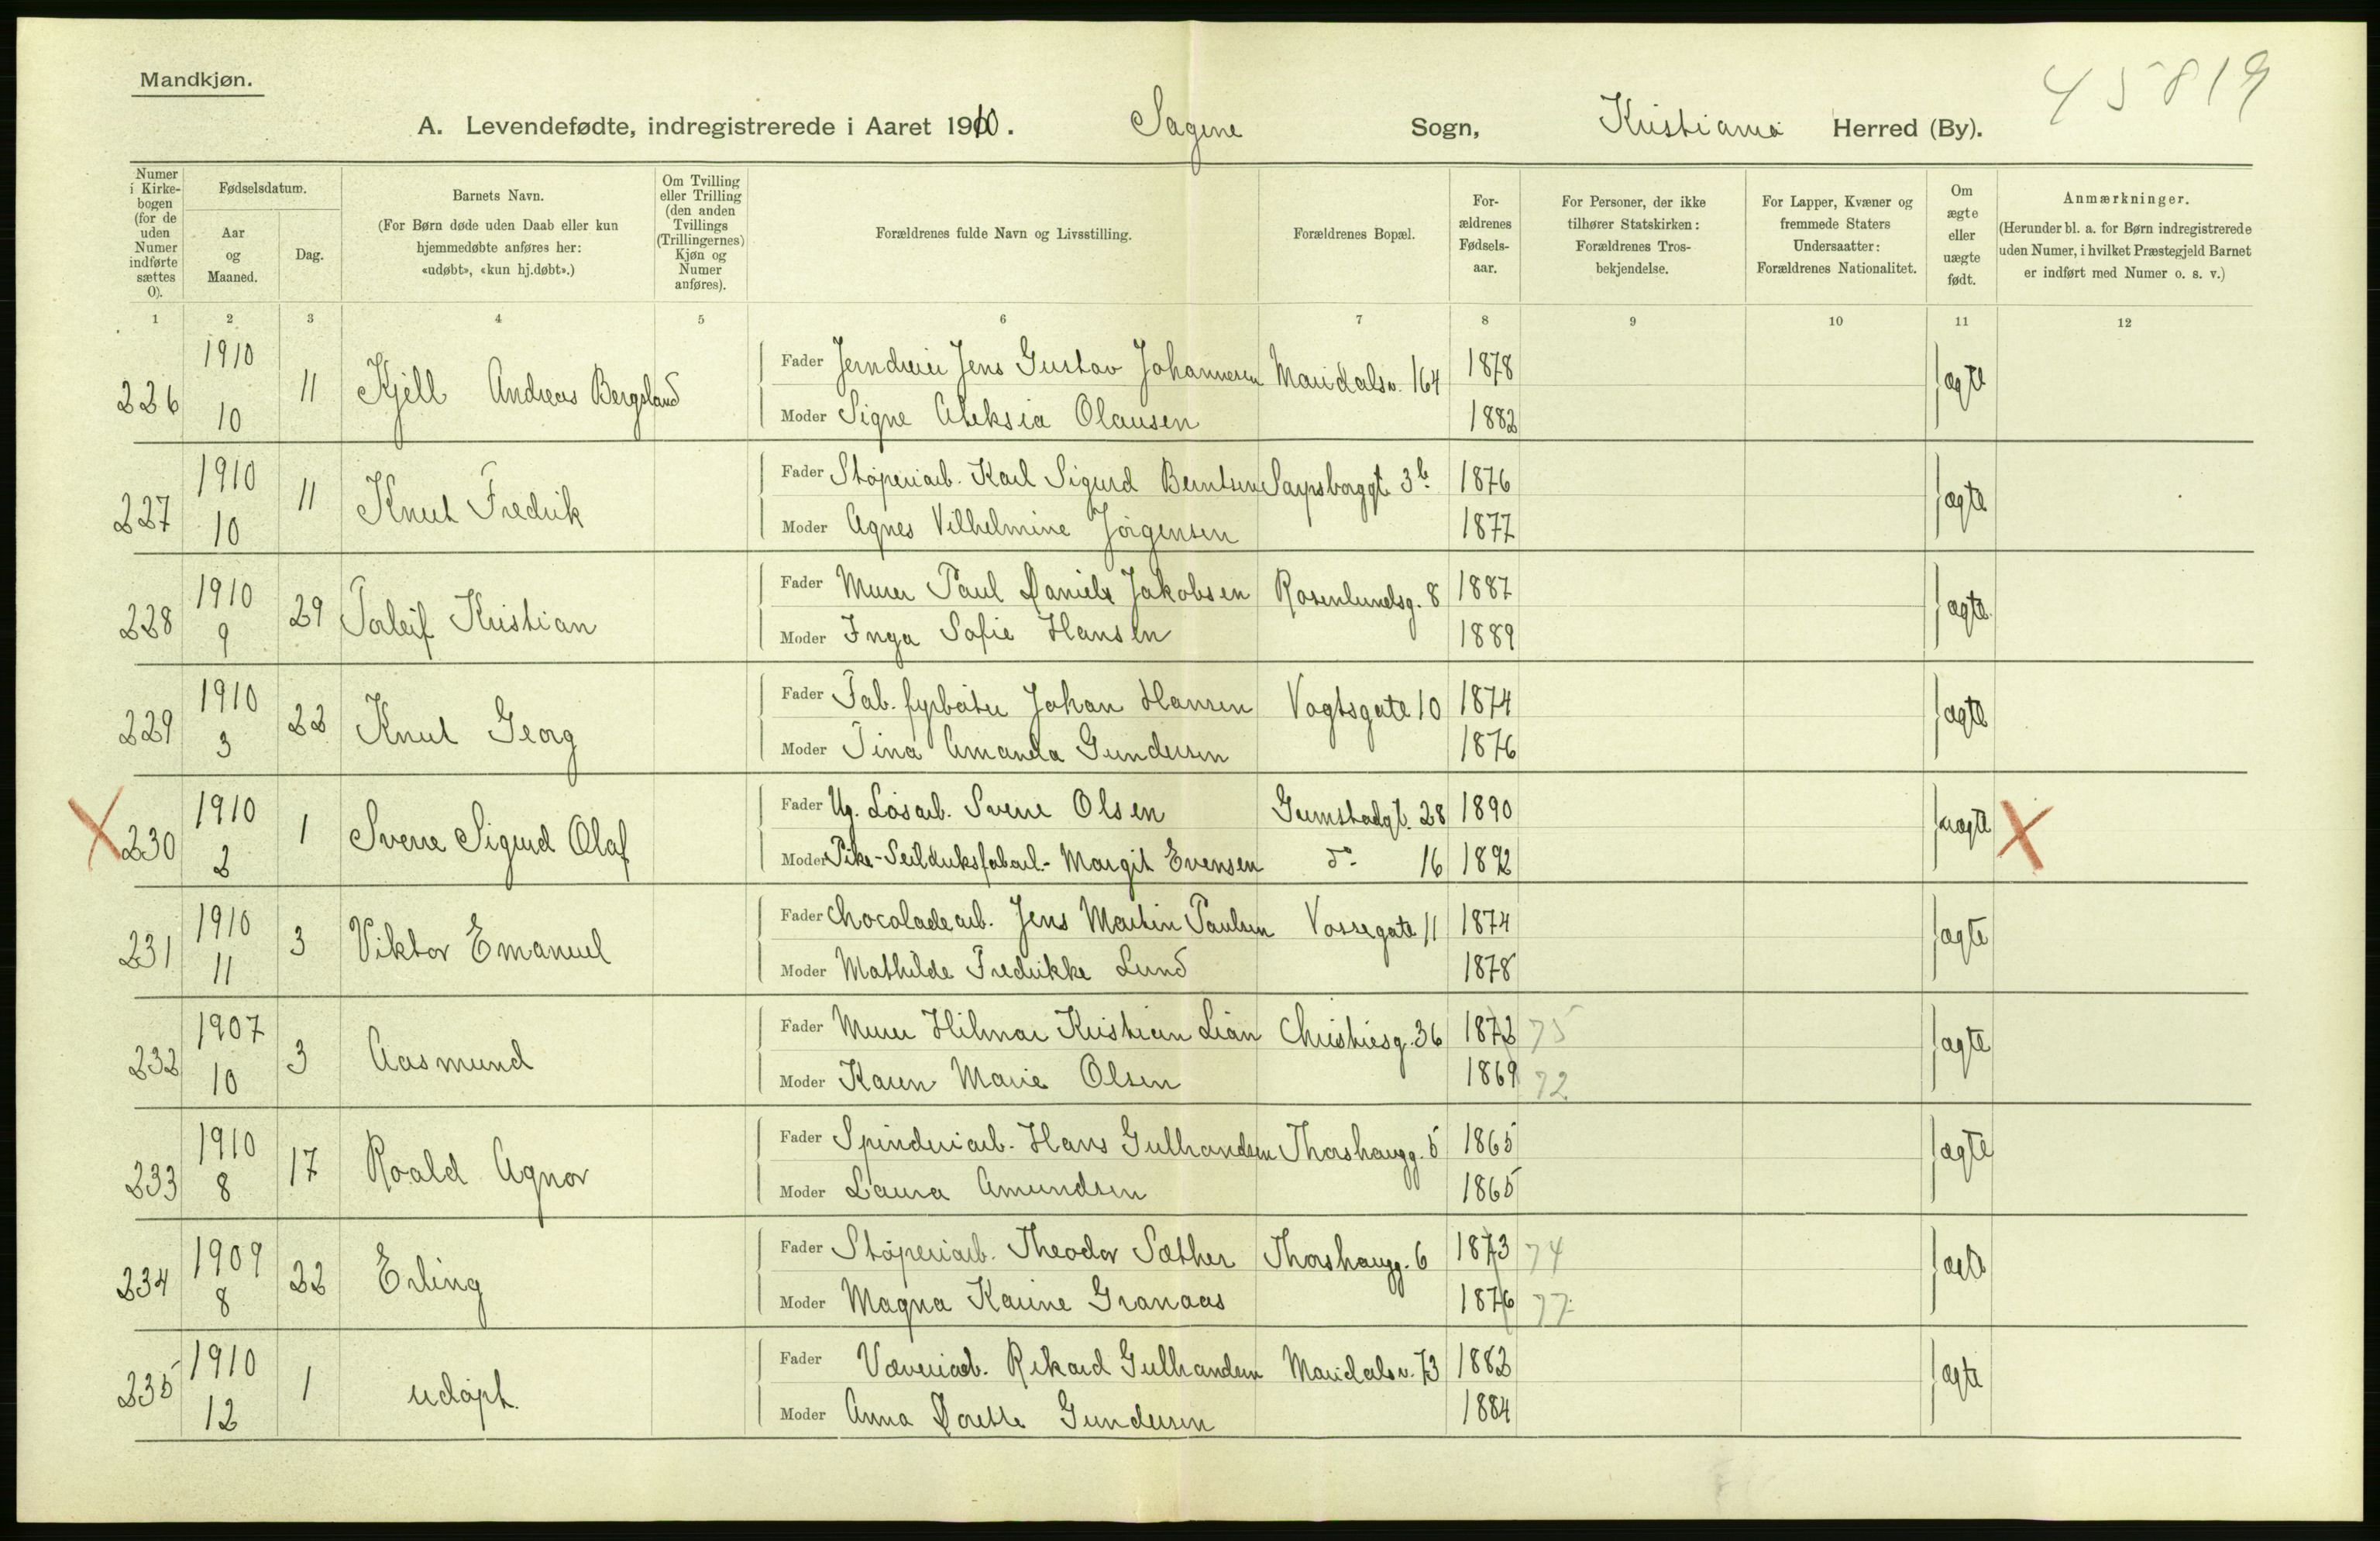 Mandkjøn.
45819
A. Levendefødte, indregistrerede i Aaret 1910. Sagene Sogn, Kristiania Herred (By).
Numer i Kirkebogen (for de uden Numer indførte sættes 0).
Fødselsdatum.
Aar og Maaned.
Dag.
Barnets Navn.
(For Børn døde uden Daab eller kun hjemmedøbte anføres her: «udøbt», «kun hj.døbt».)
Om Tvilling eller Trilling (den anden Tvillings (Trillingernes) Kjøn og Numer anføres).
Forældrenes fulde Navn og Livsstilling.
Forældrenes Bopæl.
Forældrenes Fødselsaar.
For Personer, der ikke tilhører Statskirken: Forældrenes Trosbekjendelse.
For Lapper, Kvæner og fremmede Staters Undersaatter: Forældrenes Nationalitet.
Om ægte eller uægte født.
Anmærkninger.
(Herunder bl. a. for Børn indregistrerede uden Numer, i hvilket Præstegjeld Barnet er indført med Numer o. s. v.)
1 2 3 4 5 6 7 8 9 10 11 12
226 1910 10 11 Kjell Andreas Bergsland Fader Jerndreier Jens Gustav Johannesen Maridalsv. 164 1878 ægte
Moder Signe Aleksia Olausen 1882
227 1910 10 11 Knut Fredrik Fader Støperiarb. Karl Sigurd Berntsen Sarpsborggt. 3b 1876 ægte
Moder Agnes Vilhelmine Jörgensen 1877
228 1910 9 29 Torleif Kristian Fader Murer Paul Daniels Jakobsen Rosenlundsg. 8 1887 ægte
Moder Inga Sofie Hansen 1889
229 1910 3 22 Knut Georg Fader Fab. fyrbøter Johan Hansen Vogtsgate 10 1874 ægte
Moder Tina Amanda Gundersen 1876
X 230 1910 2 1 Sverre Sigurd Olaf Fader Ug. Løsarb. Sverre Olsen 28 1890 uægte X
Moder Pike - Seilduksfabarb. - Margit Evensen do 16 1892
231 1910 11 3 Viktor Emanuel Fader Chocoladearb. Jens Martin Paulsen Vossegate 11 1874 ægte
Moder Mathilde Fredrikke Lund 1878
232 1907 10 3 Aasmund Fader Murer Hilmar Kristian Lian Christiesg. 36 1872 75 ægte
Moder Karen Marie Olsen 1869 72
233 1910 8 17 Roald Agnor Fader Spinderiarb. Hans Gulbrandsen Thorshaugg. 5 1865 ægte
Moder Laura Amundsen 1865
234 1909 8 22 Erling Fader Støperiarb. Theodor Sæther Thorshaugg. 6 1873 74 ægte
Moder Magna Karine Granaas 1876 77
235 1910 12 1 udøpt. Fader Væveriarb. Rikard Gulbrandsen Maridalsv. 73 1882 ægte
Moder Anna Dorette Gundersen 1884